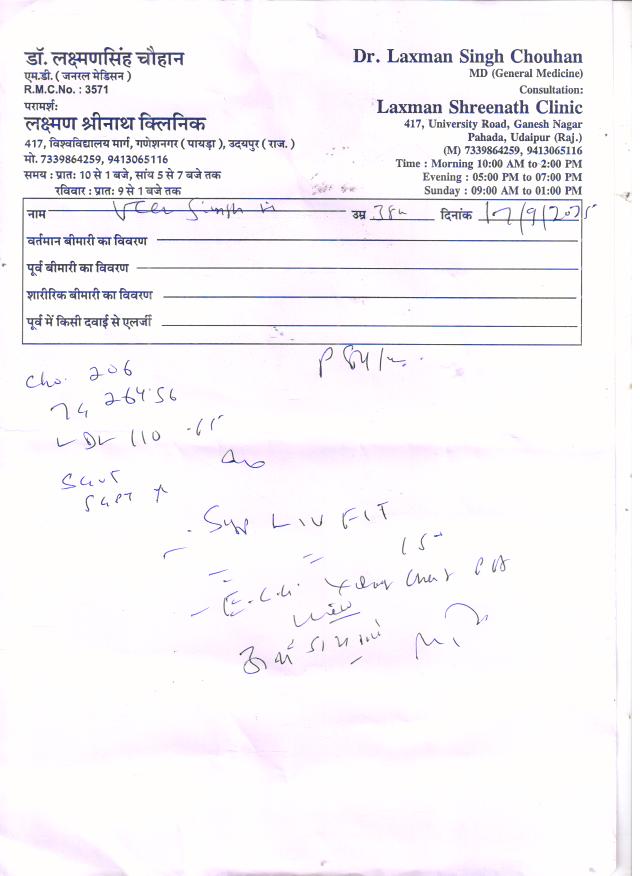 डॉ. लक्ष्मणसिंह चौहान
एम.डी. ( जनरल मेडिसन )
R.M.C.No. : 3571
परामर्श:
लक्ष्मण श्रीनाथ क्लिनिक
417, विश्वविद्यालय मार्ग, गणेशनगर ( पायड़ा ), उदयपुर ( राज. )
मो. 7339864259, 9413065116
समय : प्रात: 10 से 1 बजे, सांय 5 से 7 बजे तक
रविवार : प्रात: 9 से 1 बजे तक
Dr. Laxman Singh Chouhan
MD (General Medicine)
Consultation:
Laxman Shreenath Clinic
417, University Road, Ganesh Nagar
Pahada, Udaipur (Raj.)
(M) 7339864259, 9413065116
Time : Morning 10:00 AM to 2:00 PM
Evening : 05:00 PM to 07:00 PM
Sunday : 09:00 AM to 01:00 PM
नाम Veer Singh उम्र 38 दिनांक 17/9/2025
वर्तमान बीमारी का विवरण
पूर्व बीमारी का विवरण
शारीरिक बीमारी का विवरण
पूर्व में किसी दवाई से एलर्जी
P 84/
Cho. 206
TG 264.56
LDL 110
SGOT
SGPT ↑
Syp LIV FIT
15
E.C.G. Xray Chest PA
view